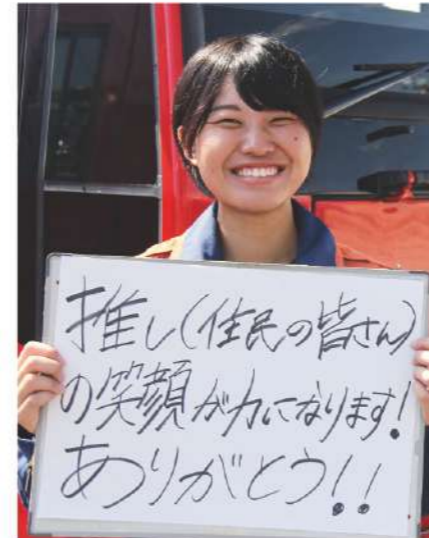 推し(住民の皆さん)
の笑顔が力になります!
ありがとう!!